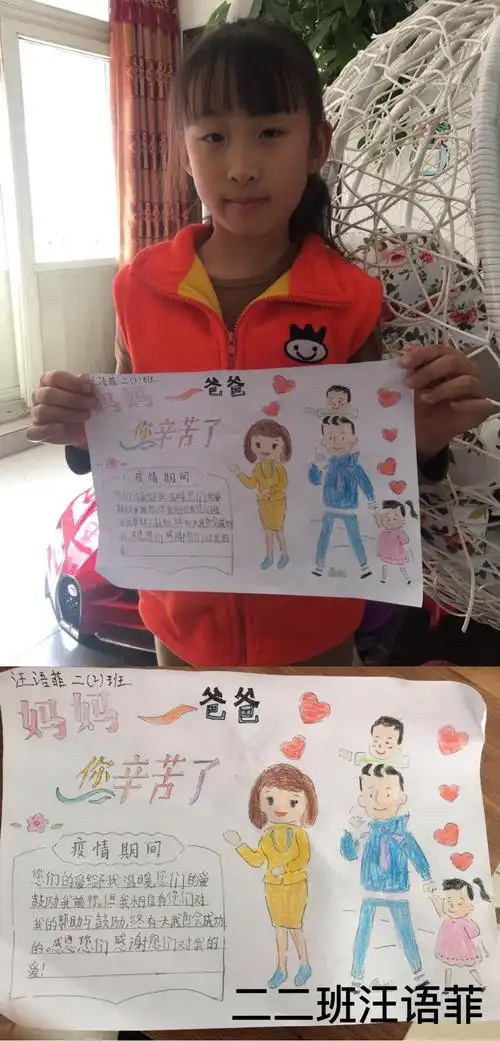 汪语菲 二(2)班
妈妈 爸爸
你辛苦了
疫情期间
汪语菲 二(2)班
妈妈 爸爸
你辛苦了
疫情期间
您们的爱给予我温暖,您们的爱
鼓励我前行,但我相信有您们对
我的帮助与鼓励,终有一天我也会成功
的。感恩您们 感谢您们对我的
爱!
二二班汪语菲